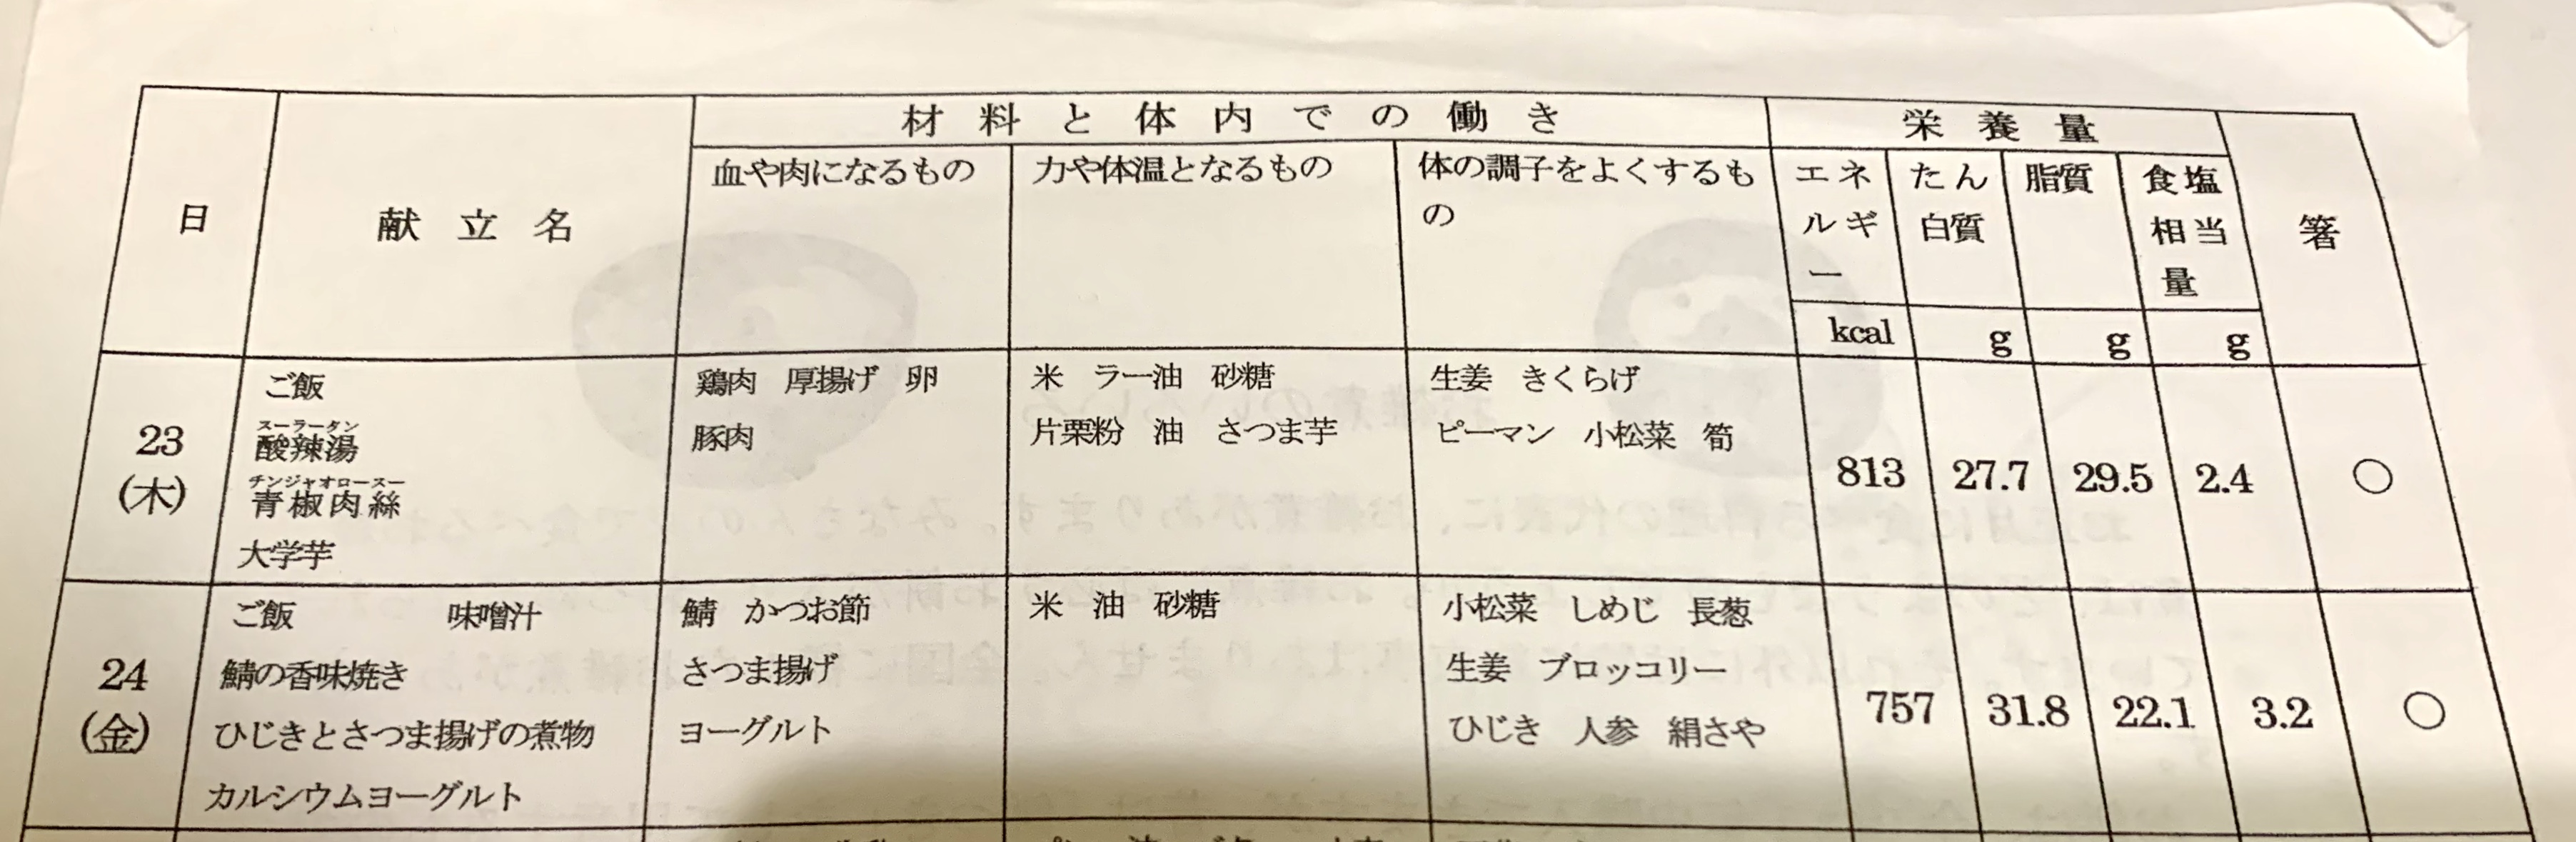 日
献立名
材料と体内での働き
栄養量
箸
血や肉になるもの
力や体温となるもの
体の調子をよくするも
の
エネ
ルギ
ー
たん
白質
脂質
食塩
相当
量
kcal
g
g
g
23
(木)
ご飯
スーラータン
酸辣湯
チンジャオロースー
青椒肉絲
大学芋
鶏肉 厚揚げ 卵
豚肉
米 ラー油 砂糖
片栗粉 油 さつま芋
生姜 きくらげ
ピーマン 小松菜 筍
813
27.7
29.5
2.4
○
24
(金)
ご飯 味噌汁
鯖の香味焼き
ひじきとさつま揚げの煮物
カルシウムヨーグルト
鯖 かつお節
さつま揚げ
ヨーグルト
米 油 砂糖
小松菜 しめじ 長葱
生姜 ブロッコリー
ひじき 人参 絹さや
757
31.8
22.1
3.2
○